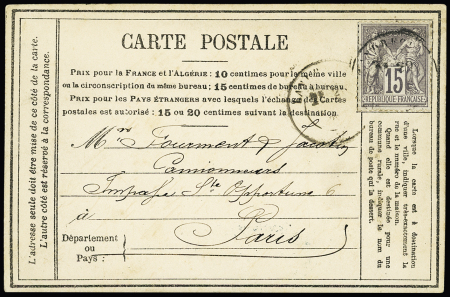 CARTE POSTALE
PRIX POUR LA FRANCE ET L'ALGÉRIE: 10 centimes pour la même ville
ou la circonscription du même bureau; 15 centimes de bureau à bureau.
PRIX POUR LES PAYS ÉTRANGERS avec lesquels l'échange de Cartes
postales est autorisé: 15 ou 20 centimes suivant la destination
L'adresse seule doit être mise de ce côté de la carte.
L'autre côté est réservé à la correspondance.
15
REPUBLIQUE FRANÇAISE
Lorsque la carte est à destination
d'une ville, indiquer très-exactement la
rue et le numéro de la maison.
Quand elle est destinée pour une
commune rurale, indiquer le nom du
bureau de poste qui la dessert.
Fourment &
Camionneurs
Impasse Ste Opportune 6
à
Paris
Département
ou
Pays: